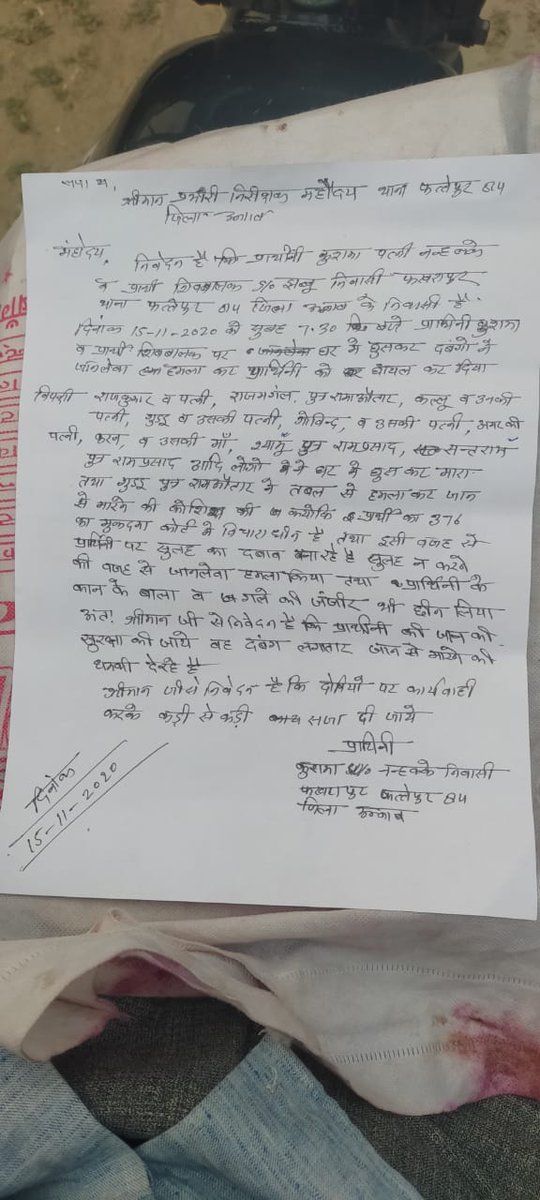 सेवा में,
श्रीमान प्रभारी निरीक्षक महोदय थाना फतेहपुर 84
जिला उन्नाव
महोदय,
निवेदन है कि प्रार्थीनी कुरामा पत्नी नन्हक्के
व प्रार्थी शिवबालक S/o झल्लू निवासी फखरापुर
थाना फतेहपुर 84 जिला उन्नाव के निवासी है।
दिनांक 15-11-2020 को सुबह 7:30 बजे प्रार्थीनी कुरामा
व प्रार्थी शिवबालक पर घर में घुसकर दबंगों ने
जानलेवा हमला कर प्रार्थिनी को घायल कर दिया
विपक्षी राजकुमार व पत्नी, राजमंगल, पुत्र रामऔतार, कल्लू व उनकी
पत्नी, गुड्डू व उसकी पत्नी, गोविन्द, व उसकी पत्नी, अमर की
पत्नी, करन, व उसकी माँ, श्यामू पुत्र रामप्रसाद, सन्तराम
पुत्र रामप्रसाद आदि लोगो ने घर मे घुस कर मारा
तथा गुड्डू पुत्र रामऔतार ने तबल से हमला कर जान
से मारने की कोशिश की क्योकि प्रार्थी का 376
का मुकदमा कोर्ट मे विचाराधीन है तथा इसी वजह से
प्रार्थिनी पर सुलह का दबाव बना रहे है सुलह न करने
की वजह से जानलेवा हमला किया तथा प्रार्थिनी के
कान के बाला व गले की जंजीर भी छीन लिया
अतः श्रीमान जी से निवेदन है कि प्रार्थीनी की जान की
सुरक्षा की जाये वह दबंग लगातार जान से मारने की
धमकी दे रहे है
श्रीमान जी से निवेदन है कि दोषियो पर कार्यवाही
करके कड़ी से कड़ी सजा दी जाये
प्रार्थिनी
कुरामा W/o नन्हक्के निवासी
फखरापुर फतेहपुर 84
जिला उन्नाव
दिनांक
15-11-2020